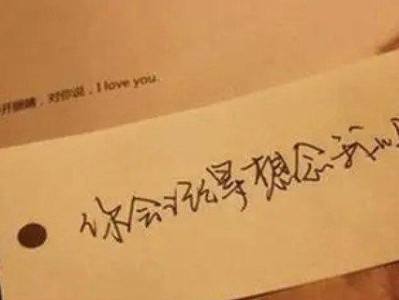 开眼睛，对你说，I love you.
你会沿途想念我吗